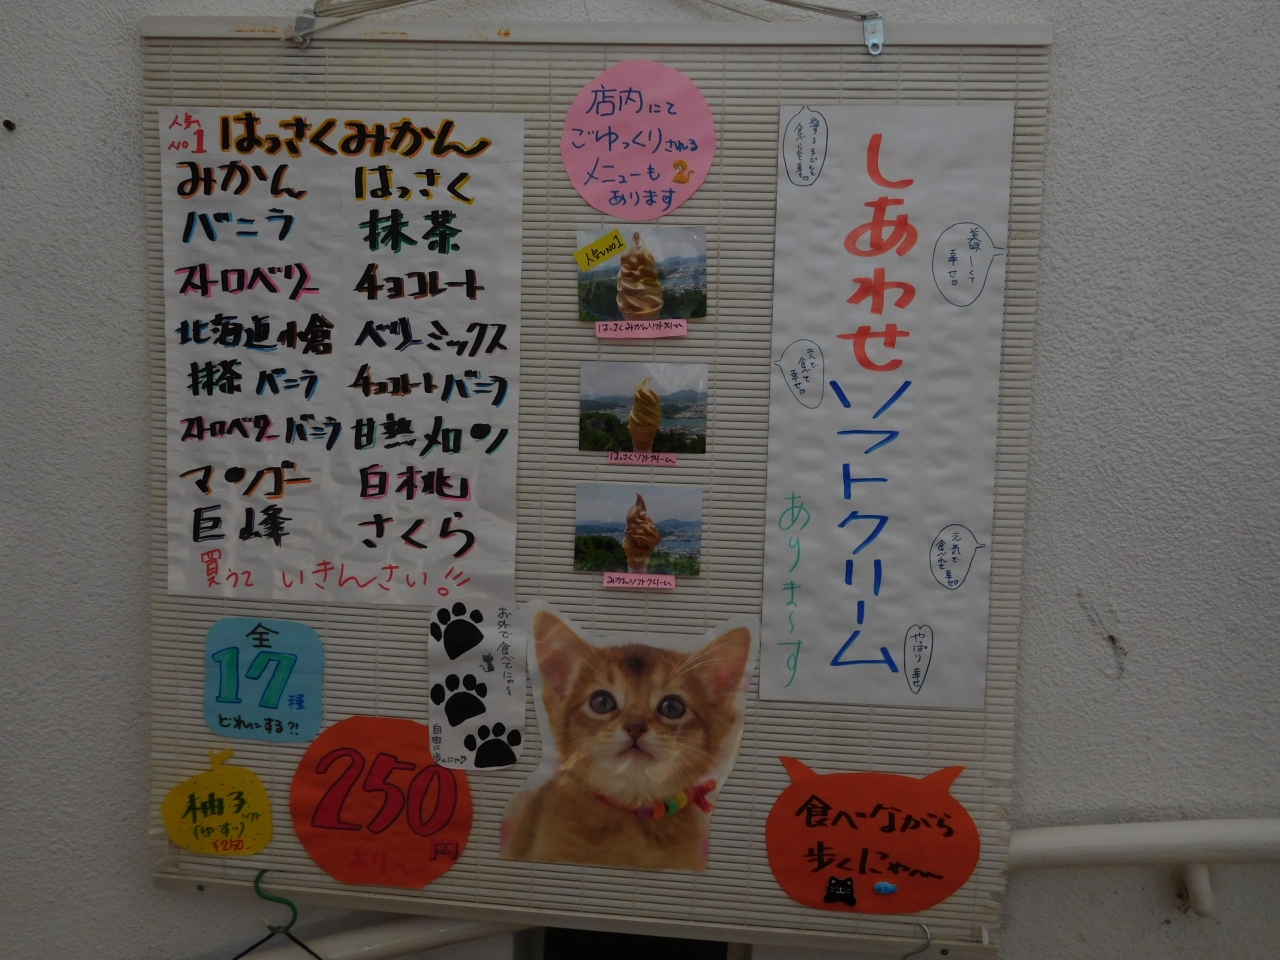 人気
No 1
はっさくみかん
みかん
はっさく
バニラ
抹茶
ストロベリー
チョコレート
北海道小倉
ベリーミックス
抹茶バニラ
チョコレートバニラ
ストロベリーバニラ
甘熟メロン
マンゴー
白桃
巨峰
さくら
買うていきんさい!!
全
17種
どれにする?!
柚子ソフト
(ゆず)
¥250
250円
より〜
お外で食べてにゃ〜
自由に
店内にて
ごゆっくりされる
メニューも
あります
人気No1
はっさくみかんソフトクリーム
はっさくソフトクリーム
みかんソフトクリーム
しあわせソフトクリーム
ありま〜す
美味しくて
幸せ♡
二人で
食べて
幸せ♡
元気で
食べれて
幸せ♡
やっぱり
幸せ
食べながら
歩くにゃ〜